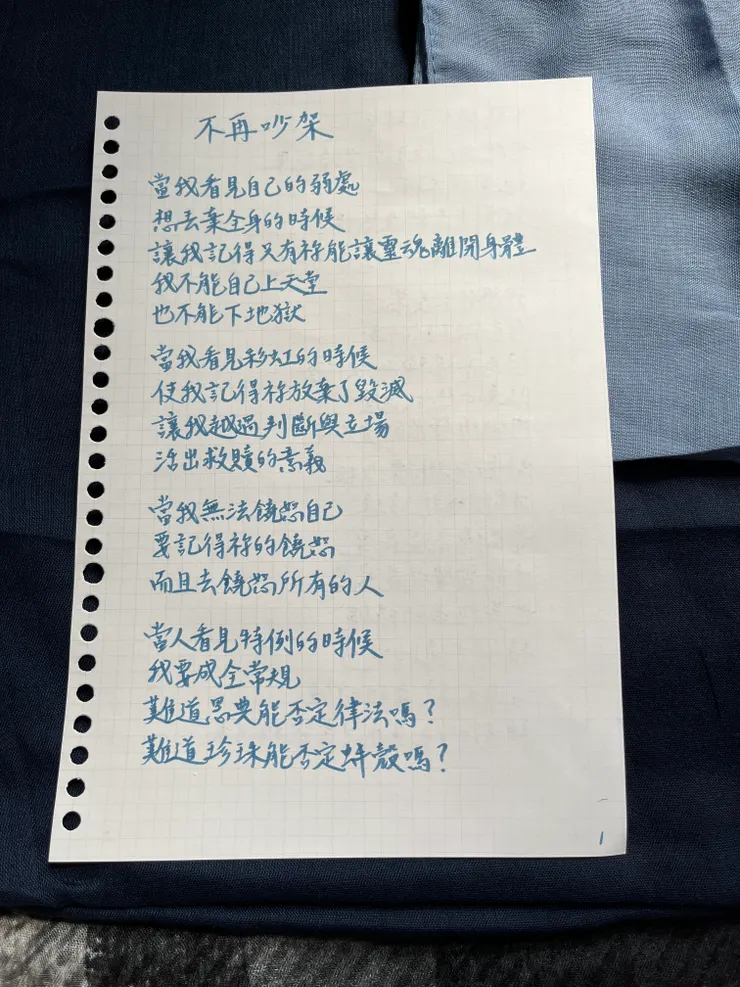 不再吵架
當我看見自己的弱處
想丟棄全身的時候
讓我記得又有祢能讓靈魂離開身體
我不能自己上天堂
也不能下地獄
當我看見彩虹的時候
使我記得祢放棄了毀滅
讓我越過判斷與立場
活出救贖的意義
當我無法饒恕自己
要記得祢的饒恕
而且去饒恕所有的人
當人看見特例的時候
我要成全常規
難道恩典能否定律法嗎？
難道珍珠能否定蚌殼嗎？
1